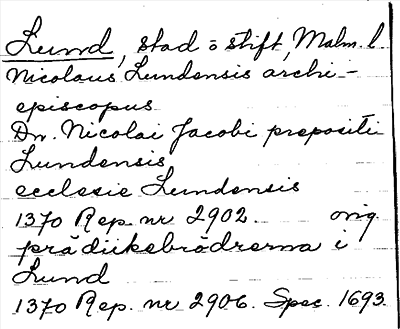 Lund, stad o stift, Malm. l.
Nicolaus Lundensis archi-
episcopus
Dn. Nicolai Jacobi prepositi
Lundensis
ecclesie Lundensis
1370 Rep. nr 2902. orig
prädikebrödrerna i
Lund
1370 Rep. nr 2906. Spec. 1693.